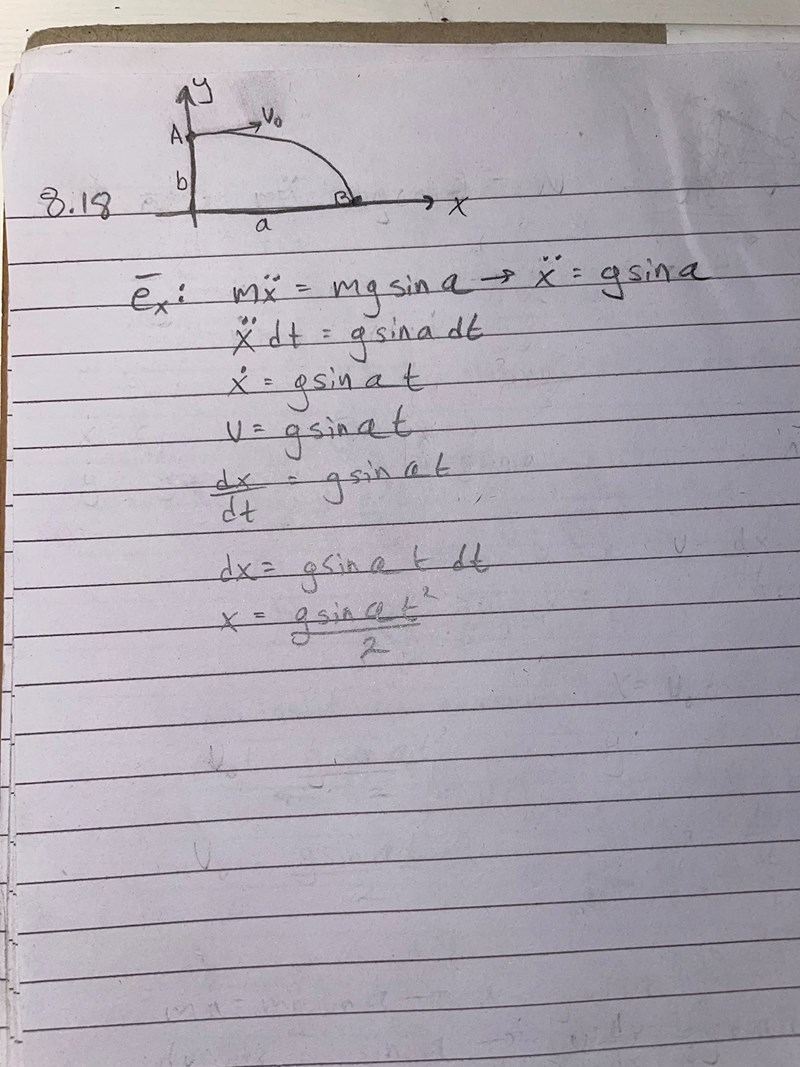 y
A
V₀
b
8.18
B
x
a
ē_x: mẍ = mg sin a → ẍ = g sin a
ẍ dt = g sin a dt
ẋ = g sin a t
v = g sin a t
dx/dt = g sin a t
dx = g sin a t dt
x = g sin a t²/2